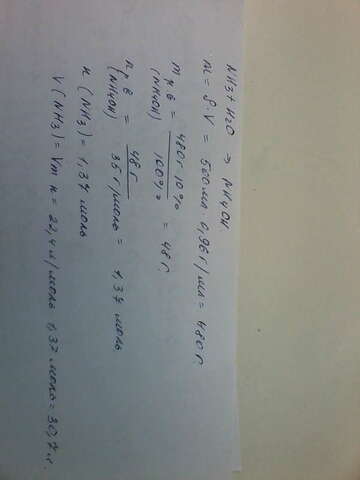 NH3 + H2O → NH4OH
m = ρ · V = 500 мл · 0,96 г/мл = 480 г.
m р.в (NH4OH) = 480 г · 10% / 100% = 48 г.
n р.в (NH4OH) = 48 г / 35 г/моль = 1,37 моль
n (NH3) = 1,37 моль
V (NH3) = Vm n = 22,4 л/моль 1,37 моль = 30,7 л.